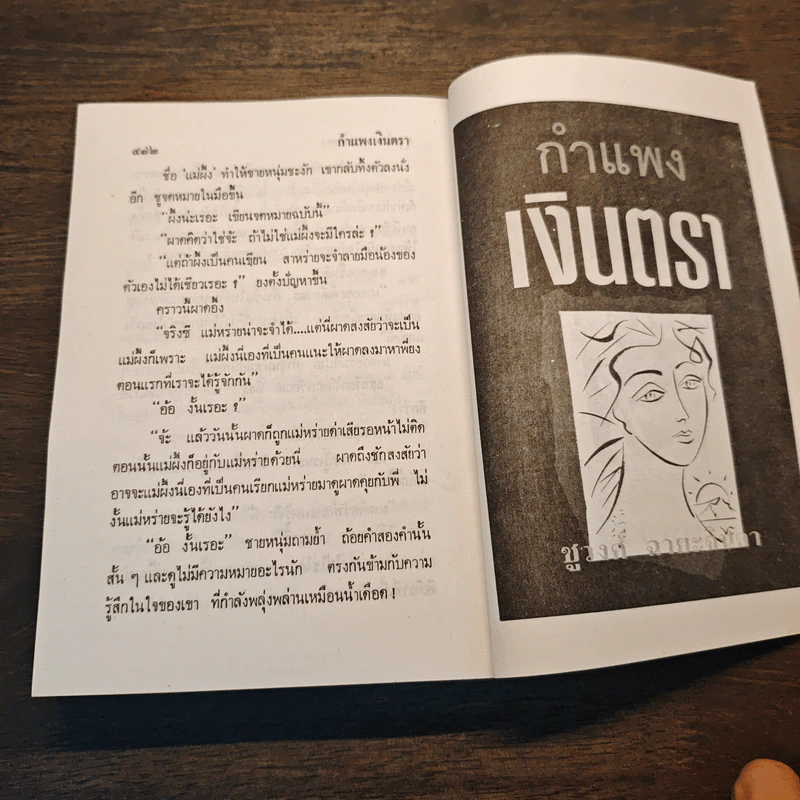 ๔๗๒ กำแพงเงินตรา
ชื่อ 'แม่ผึ้ง' ทำให้ชายหนุ่มชะงัก เขากลับทิ้งตัวลงนั่ง
อีก ชูจดหมายในมือขึ้น
“ผึ้งน่ะเรอะ เขียนจดหมายฉบับนี้”
“ผาดคิดว่าใช่จ้ะ ถ้าไม่ใช่แม่ผึ้งจะมีใครล่ะ ?”
“แต่ถ้าผึ้งเป็นคนเขียน สาหร่ายจะจำลายมือน้องของ
ตัวเองไม่ได้เชียวเรอะ ?” ยงตั้งปัญหาขึ้น
คราวนี้ผาดอึ้ง
“จริงซี แม่หร่ายน่าจะจำได้....แต่นี่ผาดสงสัยว่าจะเป็น
แม่ผึ้งก็เพราะ แม่ผึ้งนี่เองที่เป็นคนแนะให้ผาดลงมาหาพี่ยง
ตอนแรกที่เราจะได้รู้จักกัน”
“อ้อ งั้นเรอะ ?”
“จ้ะ แล้ววันนั้นผาดก็ถูกแม่หร่ายด่าเสียรอหน้าไม่ติด
ตอนนั้นแม่ผึ้งก็อยู่กับแม่หร่ายด้วยนี่ ผาดถึงชักสงสัยว่า
อาจจะแม่ผึ้งนี่เองที่เป็นคนเรียกแม่หร่ายมาดูผาดคุยกับพี่ ไม่
งั้นแม่หร่ายจะรู้ได้ยังไง”
“อ้อ งั้นเรอะ” ชายหนุ่มถามย้ำ ถ้อยคำสองคำนั้น
สั้น ๆ และดูไม่มีความหมายอะไรนัก ตรงกันข้ามกับความ
รู้สึกในใจของเขา ที่กำลังพลุ่งพล่านเหมือนน้ำเดือด !
กำแพง
เงินตรา
ชูวงศ์ ฉายะจินดา